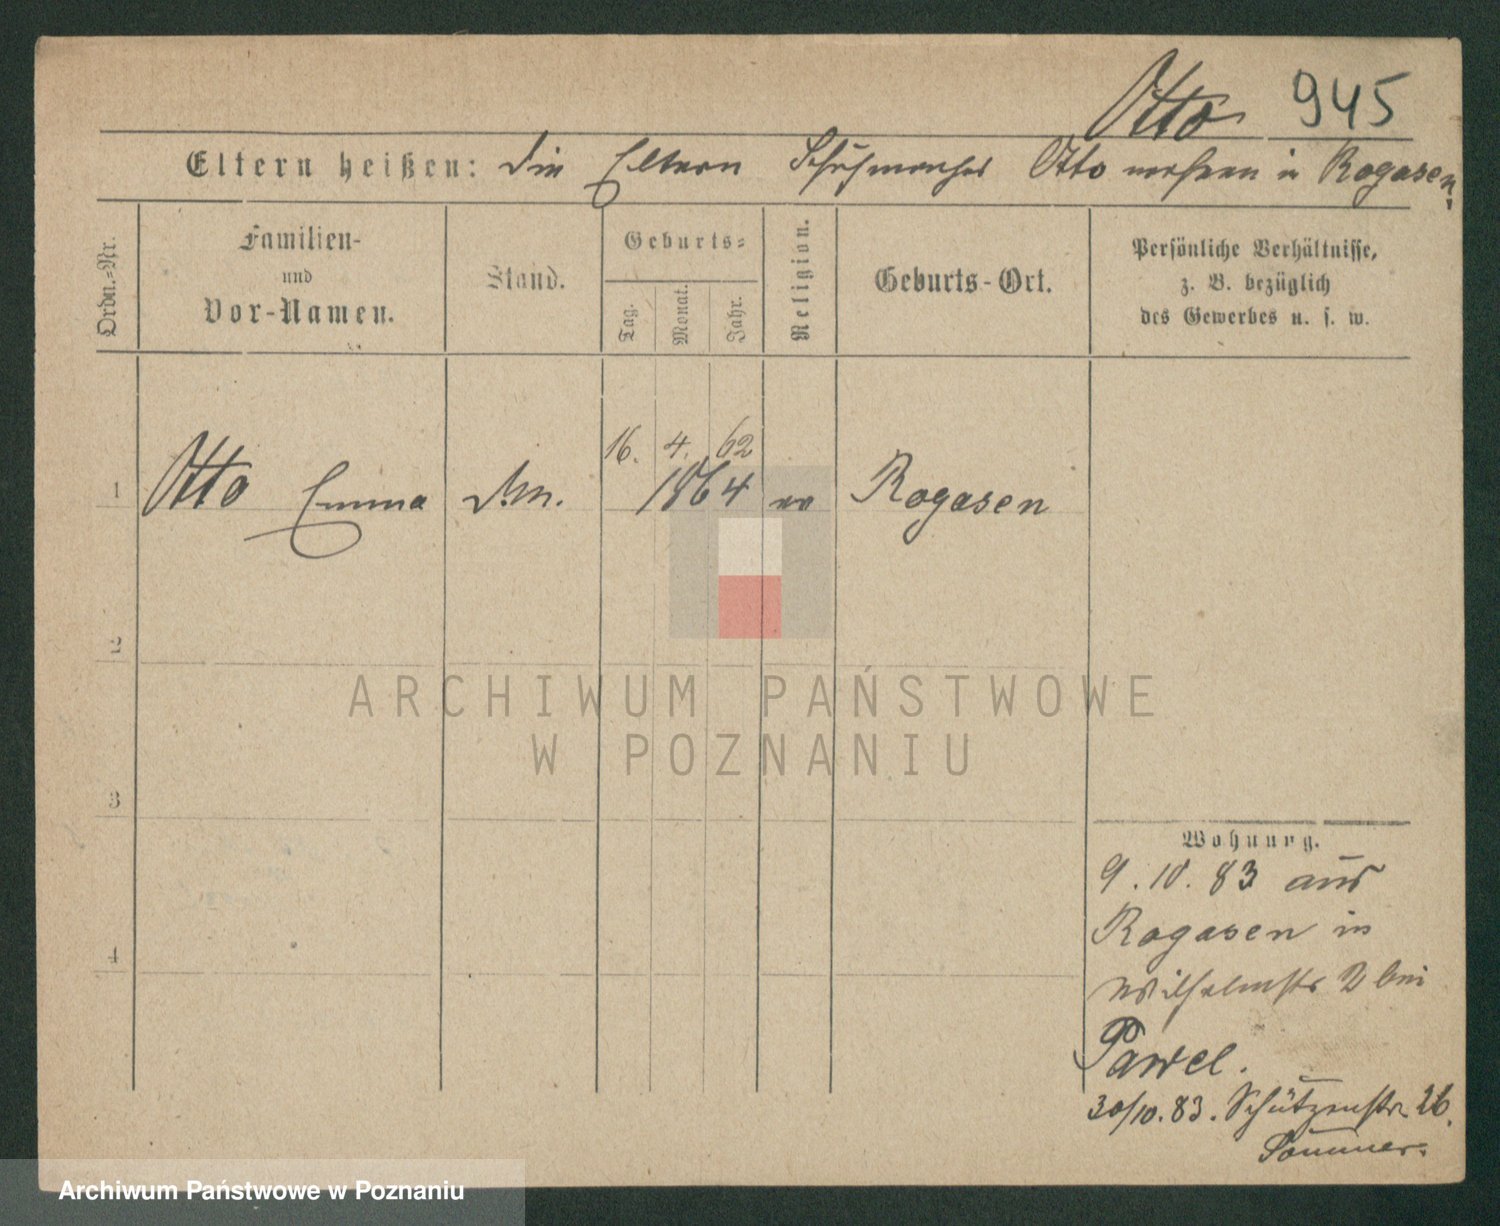 Otto 945
Eltern heißen: Die Eltern Schuhmacher Otto wohnen in Rogasen.
Ordn.-Nr.
Familien-
und
Vor-Namen.
Stand.
Geburts-
Tag.
Monat.
Jahr.
Religion.
Geburts-Ort.
Persönliche Verhältnisse,
z. B. bezüglich
des Gewerbes u. s. w.
16. 4. 62
1 Otto Emma 1864 Rogasen
2
3
4
Wohnung.
9.10.83 aus
Rogasen in
Wilhelmstr 2 bei
Pawel.
30/10.83. Schützenstr. 26.
Sommer.
ARCHIWUM PAŃSTWOWE
W POZNANIU
Archiwum Państwowe w Poznaniu